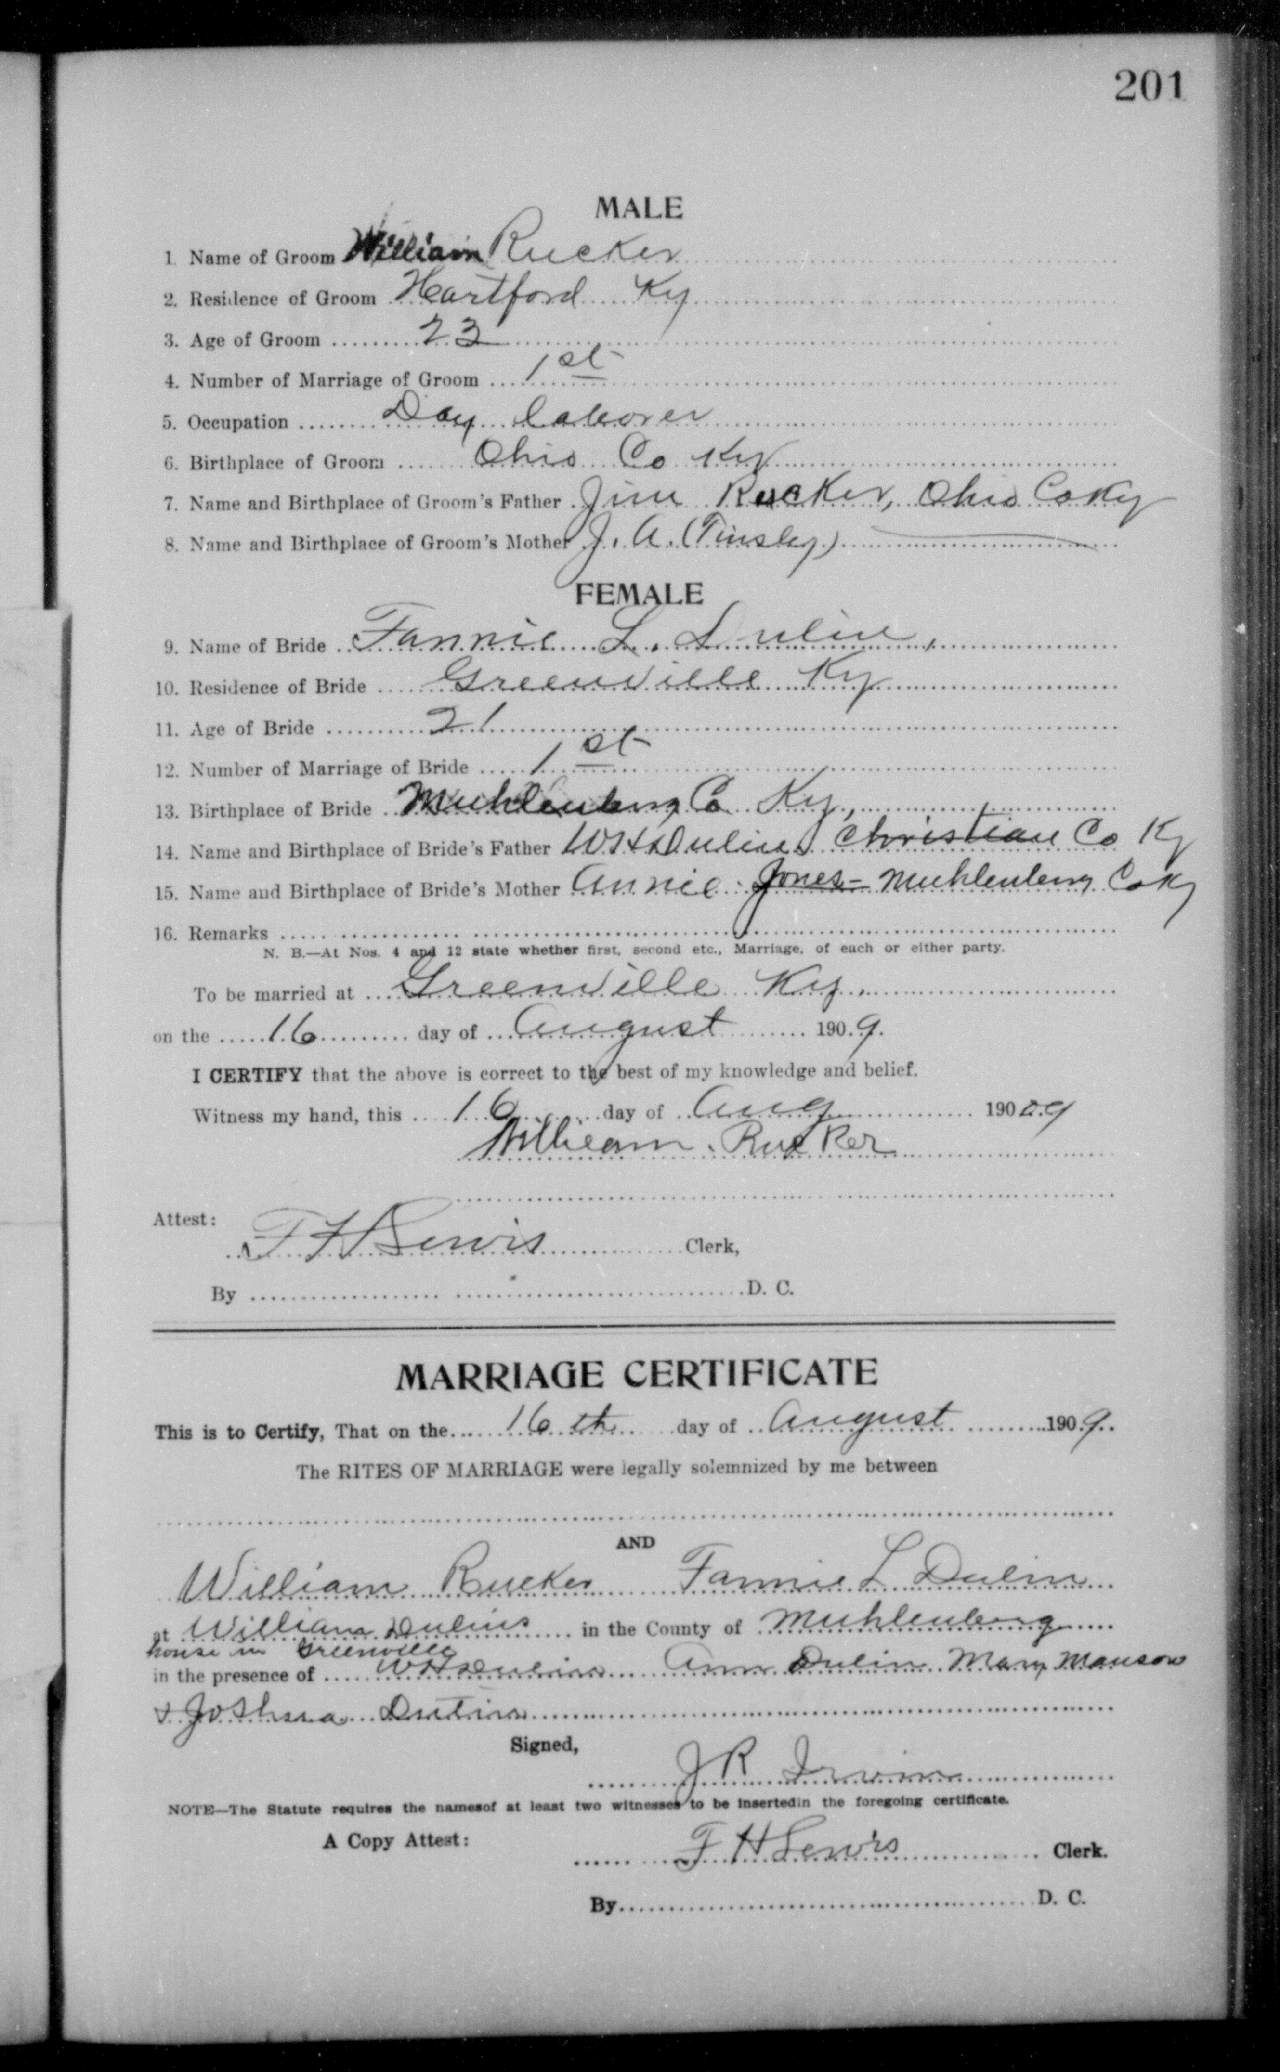 201
MALE
1. Name of Groom William Rucker
2. Residence of Groom Hartford Ky
3. Age of Groom 23
4. Number of Marriage of Groom 1st
5. Occupation Day Laborer
6. Birthplace of Groom Ohio Co Ky
7. Name and Birthplace of Groom's Father Jim Rucker, Ohio Co Ky
8. Name and Birthplace of Groom's Mother J. A. (Tinsley)
FEMALE
9. Name of Bride Fannie L. Dulin,
10. Residence of Bride Greenville Ky
11. Age of Bride 21
12. Number of Marriage of Bride 1st
13. Birthplace of Bride Muhlenberg Co Ky,
14. Name and Birthplace of Bride's Father W H Dulin Christian Co Ky
15. Name and Birthplace of Bride's Mother Annie Jones - Muhlenberg Co Ky
16. Remarks
N. B.—At Nos. 4 and 12 state whether first, second etc., Marriage, of each or either party.
To be married at Greenville Ky.
on the 16 day of August 1909.
I CERTIFY that the above is correct to the best of my knowledge and belief.
Witness my hand, this 16 day of Aug 190 09
William Rucker
Attest:
T H Lewis Clerk,
By D. C.
MARRIAGE CERTIFICATE
This is to Certify, That on the 16th day of August 1909.
The RITES OF MARRIAGE were legally solemnized by me between
AND
William Rucker Fannie L Dulin
at William Dulins in the County of Muhlenberg
house in Greenville
in the presence of W H Dulin Ann Dulin Mary Manson
& Joshua
Signed,
J R Irvin
NOTE—The Statute requires the namesof at least two witnesses to be insertedin the foregoing certificate.
A Copy Attest:
T H Lewis Clerk.
By D. C.